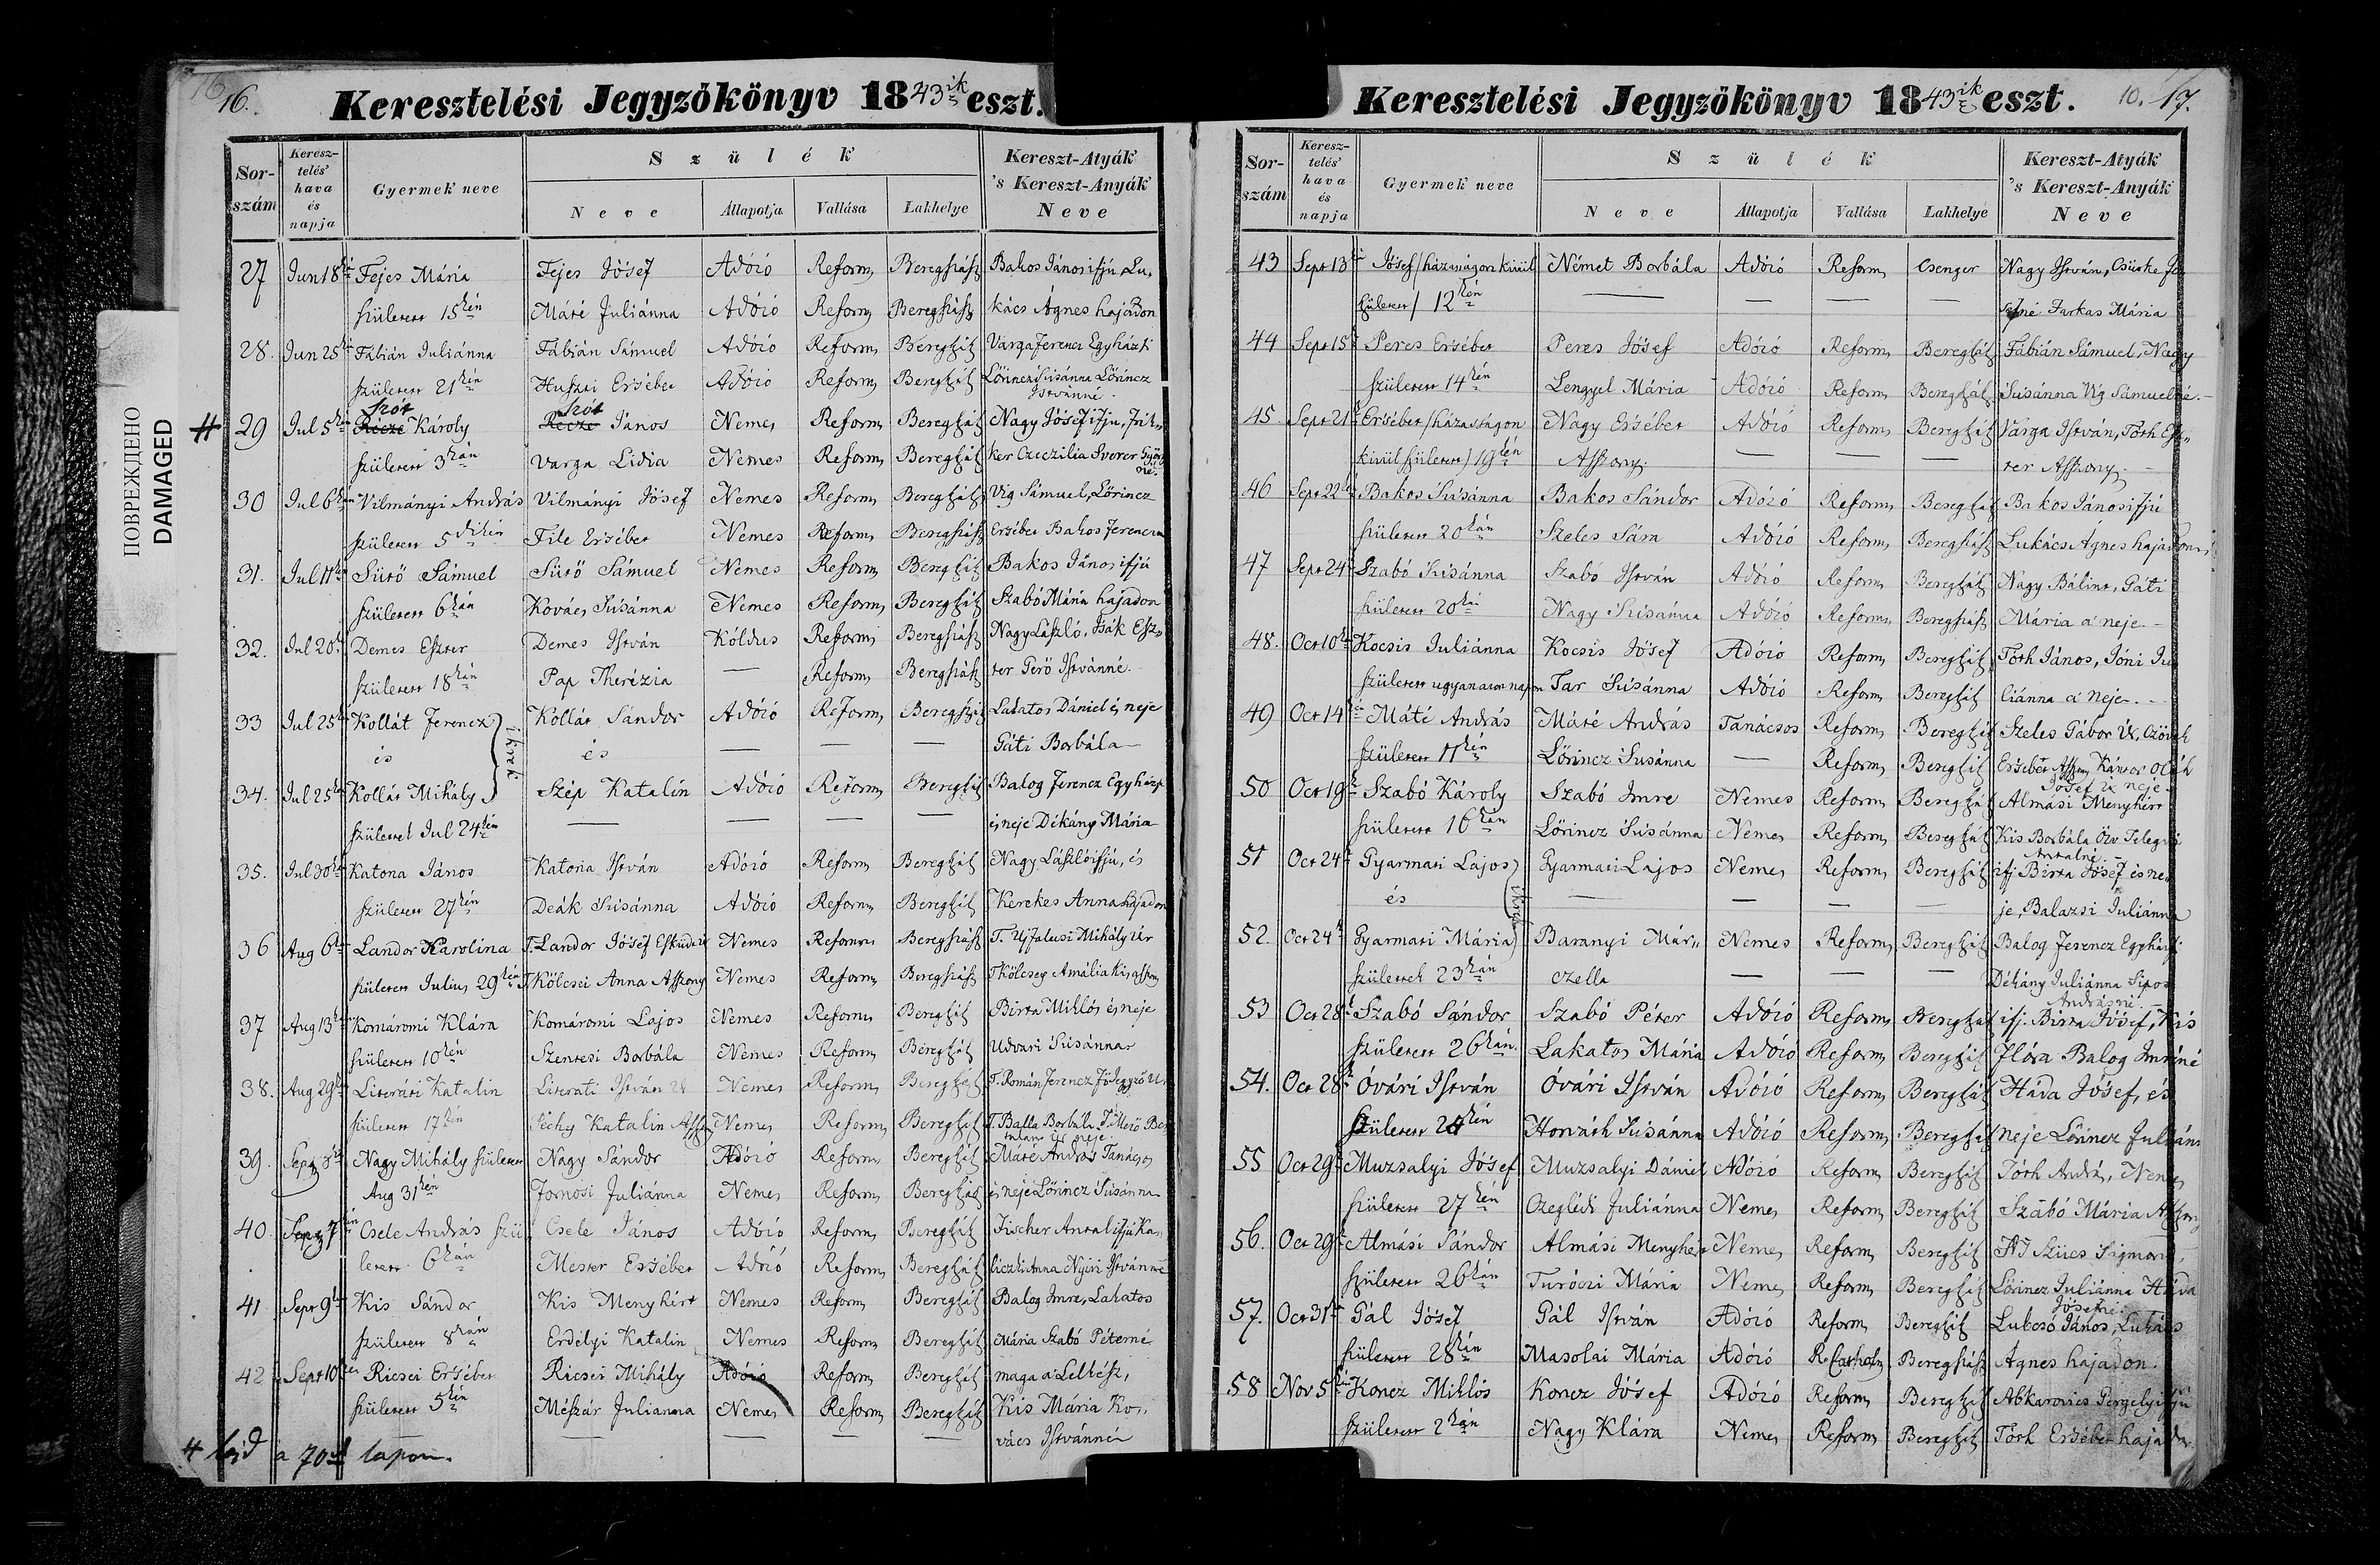 ПОВРЕЖДЕНО
DAMAGED
16.
Keresztelési Jegyzökönyv 1843ik eszt.
Sor-szám Keresz-telés' hava és napja Gyermek neve Szülék Kereszt-Atyák 's Kereszt-Anyák Neve
Neve Állapotja Vallása Lakhelye
27 Jun 18 Fejes Mária Fejes Jósef Adózó Reform, Beregszász Bakos János ifjú, Lu,
született 15kén Máté Juliánna Adózó Reform, Beregszász kács Ágnes hajadon
28. Jun 25 Fábián Juliánna Fábián Sámuel Adózó Reform, Beregszász Varga Ferencz Egyházfi
született 21kén Huszti Ersébet Adózó Reform, Beregszász Lörincz Susánna Lörincz
Istvánné
# Szót Szót
29 Jul 5 Récze Károly Récze János Nemes Reform, Beregszász Nagy Jósef ifju,
született 3kán Varga Lidia Nemes Reform, Beregszász ker Czeczilia
30 Jul 6 Vilmányi András Vilmányi Jósef Nemes Reform, Beregszász Vig Sámuel, Lörincz
született 5 File Ersébet Nemes Reform, Beregszász Ersébet Bakos Ferenczné
31. Jul 11 Sütö Sámuel Sütö Sámuel Nemes Reform, Beregszász Bakos János ifjú
született 6kán Kovács Susánna Nemes Reform, Beregszász Szabó Mária hajadon
32. Jul 20 Demes Eszter Demes István Kóldus Reform, Beregszász Nagy László, Isák Esz,
született 18kán Pap Therézia — Reform, Beregszász ter Gerö Istvánné
33 Jul 25 Kollát Ferencz Kollár Sándor Adózó Reform, Beregszász Lakatos Dániel és neje
és ikrek és — — — Gáti Borbála
34. Jul 25 Kollár Mihály Szép Katalin Adózó Reform, Beregszász Balog Ferencz Egyházfi
születtek Jul 24kén — — — — és neje Dékány Mária
35. Jul 30 Katona János Katona István Adózó Reform, Beregszász Nagy László ifjú, és
született 27kén Deák Susánna Adózó Reform, Beregszász Kerekes Anna hajadon
36 Aug 6 Landor Karolina T. Landor Jósef Esküdt Nemes Reform, Beregszász T. Ujfalusi Mihály Úr
született Julius 29kén T. Kölcsei Anna Asszony Nemes Reform, Beregszász T. Kölcsey Amália Kisasszony
37 Aug 13 Komáromi Klára Komáromi Lajos Nemes Reform, Beregszász Birta Miklós és neje
született 10kén Szentesi Borbála Nemes Reform, Beregszász Udvari Susánna
38. Aug 29 Literáti Katalin Literati István Úr Nemes Reform, Beregszász T. Román Ferencz Fö Jegyzö Úr
született 17kén Katalin Nemes Reform, Beregszász T. Balla Borbála
neje
39. Sept 3 Nagy Mihály született Nagy Sándor Adózó Reform, Beregszász Máté András Tanácsos
Aug 31kén Jornosi Juliánna Nemes Reform, Beregszász és neje Lörincz Susánna
40. Sept 7 Csele András szü Csele János Adózó Reform, Beregszász Fischer Antal ifjú Ka,
letett 6kán Mester Ersébet Adózó Reform, Beregszász liczki Anna Nyiri Istvánné
41. Sept 9 Kis Sándor Kis Menyhért Nemes Reform, Beregszász Balog Imre, Lakatos
született 8kán Erdélyi Katalin Nemes Reform, Beregszász Mária Szabó Péterné
42. Sept 10 Ricsei Ersébet Ricsei Mihály Adózó Reform, Beregszász maga a Lelkész,
született 5kén Mészár Julianna Nemes Reform, Beregszász Kis Mária Ko,
— — — — vács Istvánné
# lásd a 70ik lapon.
10. 17.
Keresztelési Jegyzökönyv 1843ik eszt.
Sor-szám Keresz-telés' hava és napja Gyermek neve Szülék Kereszt-Atyák 's Kereszt-Anyák Neve
Neve Állapotja Vallása Lakhelye
43 Sept 13 Jósef /házasságon kivül Német Borbála Adózó Reform, Csenger Nagy István, Csürke Jó
született/ 12kén — — — — sefné Farkas Mária
44 Sept 15 Peres Ersébet Peres Jósef Adózó Reform, Beregszász Fábián Sámuel, Nagy
született 14kén Lengyel Mária Adózó Reform, Beregszász Susánna Vig Sámuelné.
45. Sept 21 Ersébet /házasságon Nagy Ersébet Adózó Reform, Beregszász Varga István, Tóth Esz,
kivül született/ 19kén Asszony. — — — ter Asszony
46 Sept 22 Bakos Susánna Bakos Sándor Adózó Reform, Beregszász Bakos János ifjú
született 20kán Szeles Sára Adózó Reform, Beregszász Lukács Ágnes hajadon
47 Sept 24 Szabó Susánna Szabó István Adózó Reform, Beregszász Nagy Bálint, Gáti
született 20kán Nagy Susánna Adózó Reform, Beregszász Mária a' neje.
48. Oct 10 Kocsis Juliánna Kocsis Jósef Adózó Reform, Beregszász Tóth János, Jóni Ju
született ugyanazon napon Tar Susánna Adózó Reform, Beregszász liánna a' neje.
49 Oct 14 Máté András Máté András Tanácsos Reform, Beregszász Szeles Gábor Úr,
született 11kén Lörincz Susánna — Reform, Beregszász Ersébet Asszony Kántor Oláh
Jósef Úr neje
50 Oct 19 Szabó Károly Szabó Imre Nemes Reform, Beregszász Almási Menyhért
született 16kán Lörincz Susánna Nemes Reform, Beregszász Kis Borbála Özv. Telegdi
Antalné
51 Oct 24 Gyarmati Lajos Gyarmati Lajos Nemes Reform, Beregszász ifj. Birta Jósef és ne
és ikrek — — — — je, Balazsi Juliánna
52. Oct 24 Gyarmati Mária Baranyi Már,, Nemes Reform, Beregszász Balog Ferencz Egyházfi
születtek 23kán czella — — — Dékány Juliánna Sipos
Andrásné
53 Oct 28 Szabó Sándor Szabó Péter Adózó Reform, Beregszász ifj. Birta Jósef, Kis
született 26kán Lakatos Mária Adózó Reform, Beregszász Flóra Balog Imréné
54. Oct 28 Óvári István Óvári István Adózó Reform, Beregszász Háda Jósef, és
született 24kén Horváth Susánna Adózó Reform, Beregszász neje Lörincz Juliána
55 Oct 29 Muzsalyi Jósef Muzsalyi Dániel Adózó Reform, Beregszász Tóth András, Nemes
született 27kén Czeglédi Juliánna Nemes Reform, Beregszász Szabó Mária Asszony
56. Oct 29 Almási Sándor Almási Menyhért Nemes Reform, Beregszász Szücs Sigmond,
született 26kán Turóczi Mária Nemes Reform, Beregszász Lörincz Juliánna Háda
Jósefné.
57. Oct 31 Gál Jósef Gál István Adózó Reform, Beregszász Lubcsó János, Lukács
született 28kán Masolai Mária Adózó R. Cathol, Beregszász Ágnes hajadon.
58 Nov 5 Koncz Miklós Koncz Jósef Adózó Reform, Beregszász Abkarovics Gergely ifjú
született 2kán Nagy Klára Nemes Reform, Beregszász Tóth Ersébet hajadon